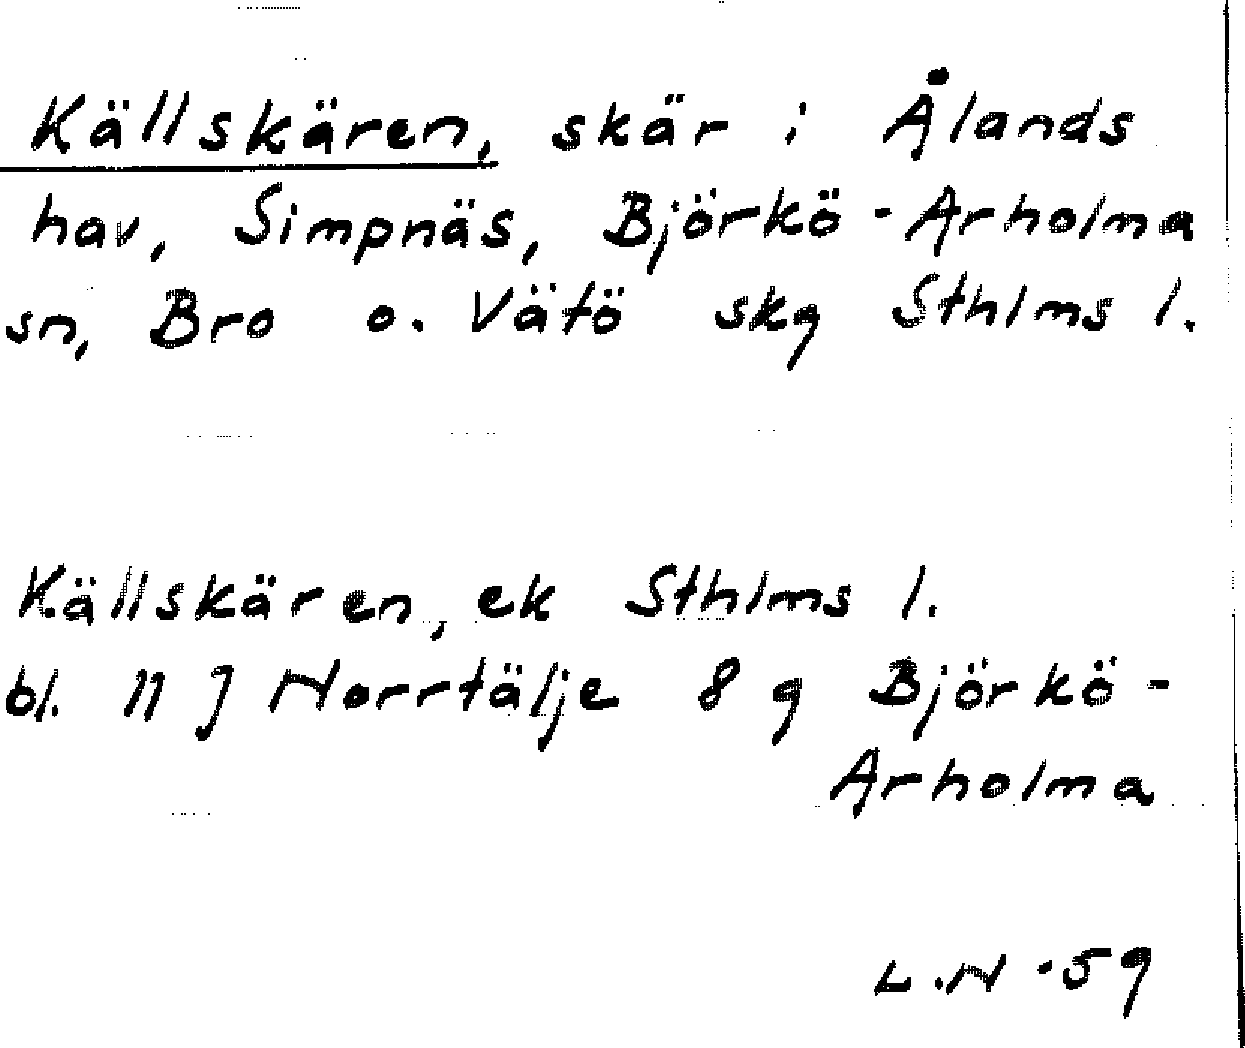 Källskären, skär i Ålands
hav, Simpnäs, Björkö-Arholma
sn, Bro o. Vätö skg Sthlms l.
Källskären, ek Sthlms l.
bl. 11 J Norrtälje 8 g Björkö-
Arholma
L.N -59